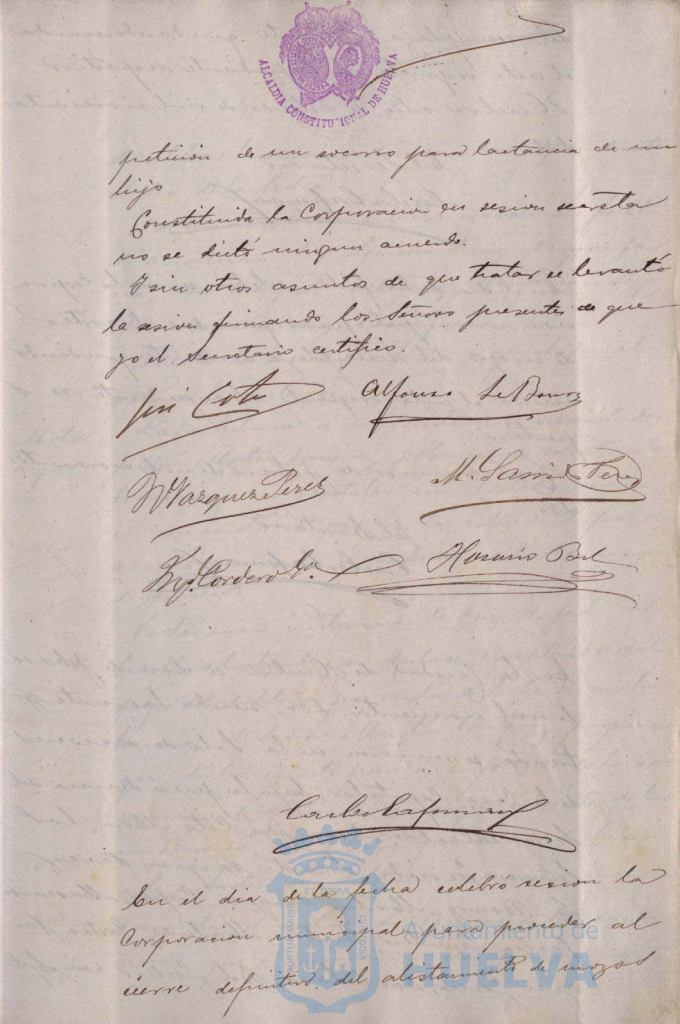 ALCALDIA CONSTITUCIONAL DE HUELVA
peticion de un socorro para lactancia de un
hijo
Constituida la Corporacion en sesion secreta
no se dictó ningun acuerdo.
Y sin otros asuntos de que tratar se levantó
la sesion firmando los Señores presentes de que
yo el Secretario certifico.
José Alfonso
M Vazquez Perez M.
Cordero Horacio Bel
En el dia de la fecha celebró sesion la
Corporacion municipal para proceder al
cierre definitivo del alistamiento de mozos
Ayuntamiento de
HUELVA